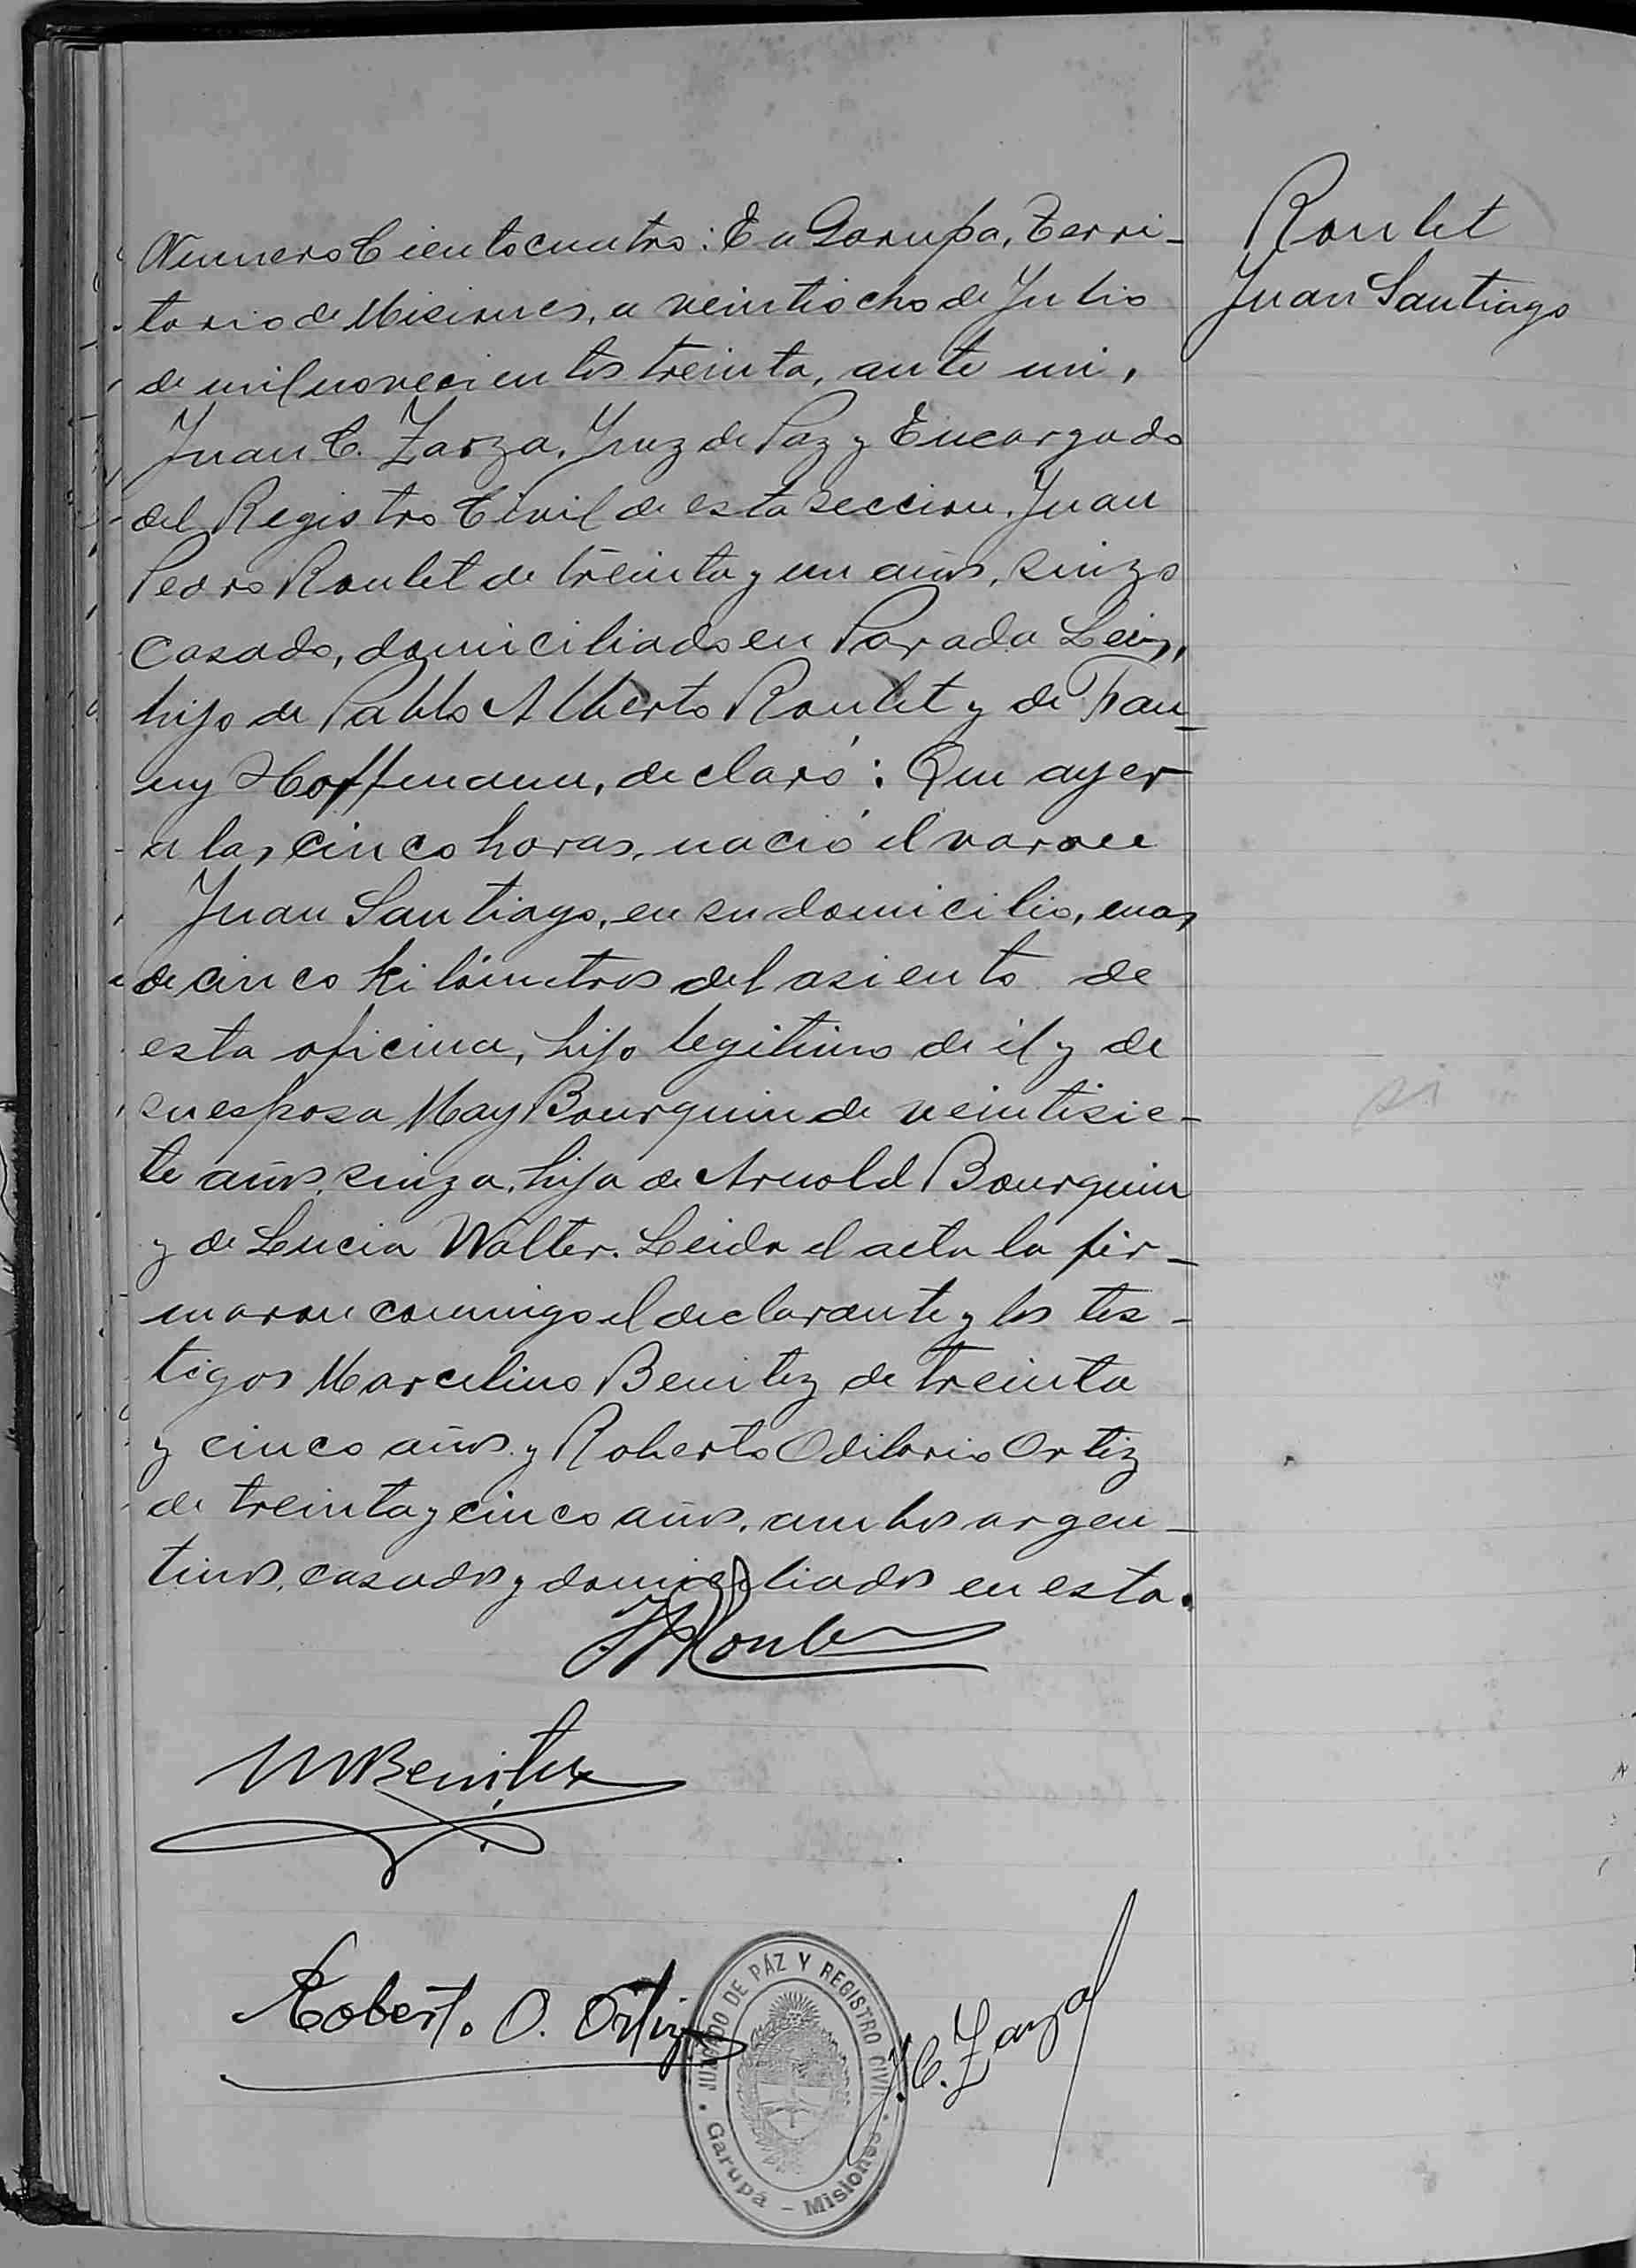 Roulet
Juan Santiago
Numero Ciento cuatro: En Garupa, Terri-
torio de Misiones, a veintiocho de Julio
de mil novecientos treinta, ante mi,
Juan C. Zarza, Juez de Paz y Encargado
del Registro Civil de esta seccion, Juan
Pedro Roulet de treinta y un años, suizo
casado, domiciliado en Parada Leis,
hijo de Pablo Alberto Roulet y de Fan-
ny Hoffmann, declaró: Que ayer
a las cinco horas, nació el varon
Juan Santiago, en su domicilio, mas
de cinco kilómetros del asiento de
esta oficina, hijo legitimo de él y de
su esposa May Bourquin de veintisie-
te años, suiza, hija de Arnold Bourquin
y de Lucia Walter. Leida el acta la fir-
maron conmigo el declarante y los tes-
tigos Marcelino Benitez de treinta
y cinco años y Roberto Odilorio Ortiz
de treinta y cinco años, ambos argen-
tinos, casados y domiciliados en esta.
JPRoulet
M Benitez
Robert. O. Ortiz
J. C. Zarza
JUZGADO DE PÁZ Y REGISTRO CIVIL
Garupá - Misiones